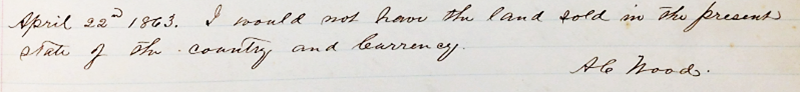 April 22d 1863. I would not have the land sold in the present
state of the country and Currency.
AC Wood.